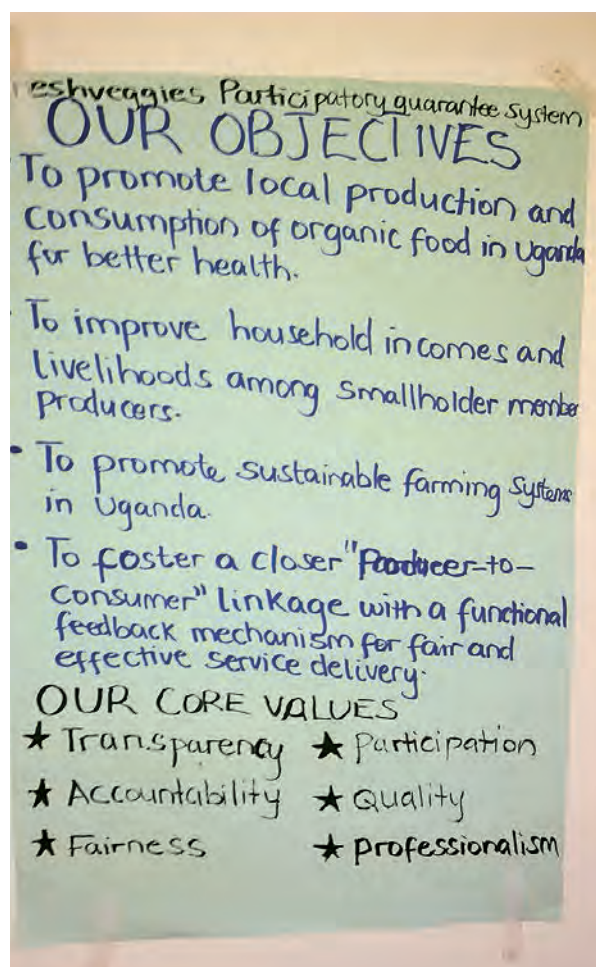 eshveggies Participatory guarantee system
OUR OBJECTIVES
To promote local production and
consumption of organic food in Uganda
for better health.
• To improve household incomes and
livelihoods among smallholder member
producers.
• To promote sustainable farming systems
in Uganda.
• To foster a closer "Producer-to-
consumer" linkage with a functional
feedback mechanism for fair and
effective service delivery.
OUR CORE VALUES
★ Transparency ★ Participation
★ Accountability ★ Quality
★ Fairness ★ professionalism